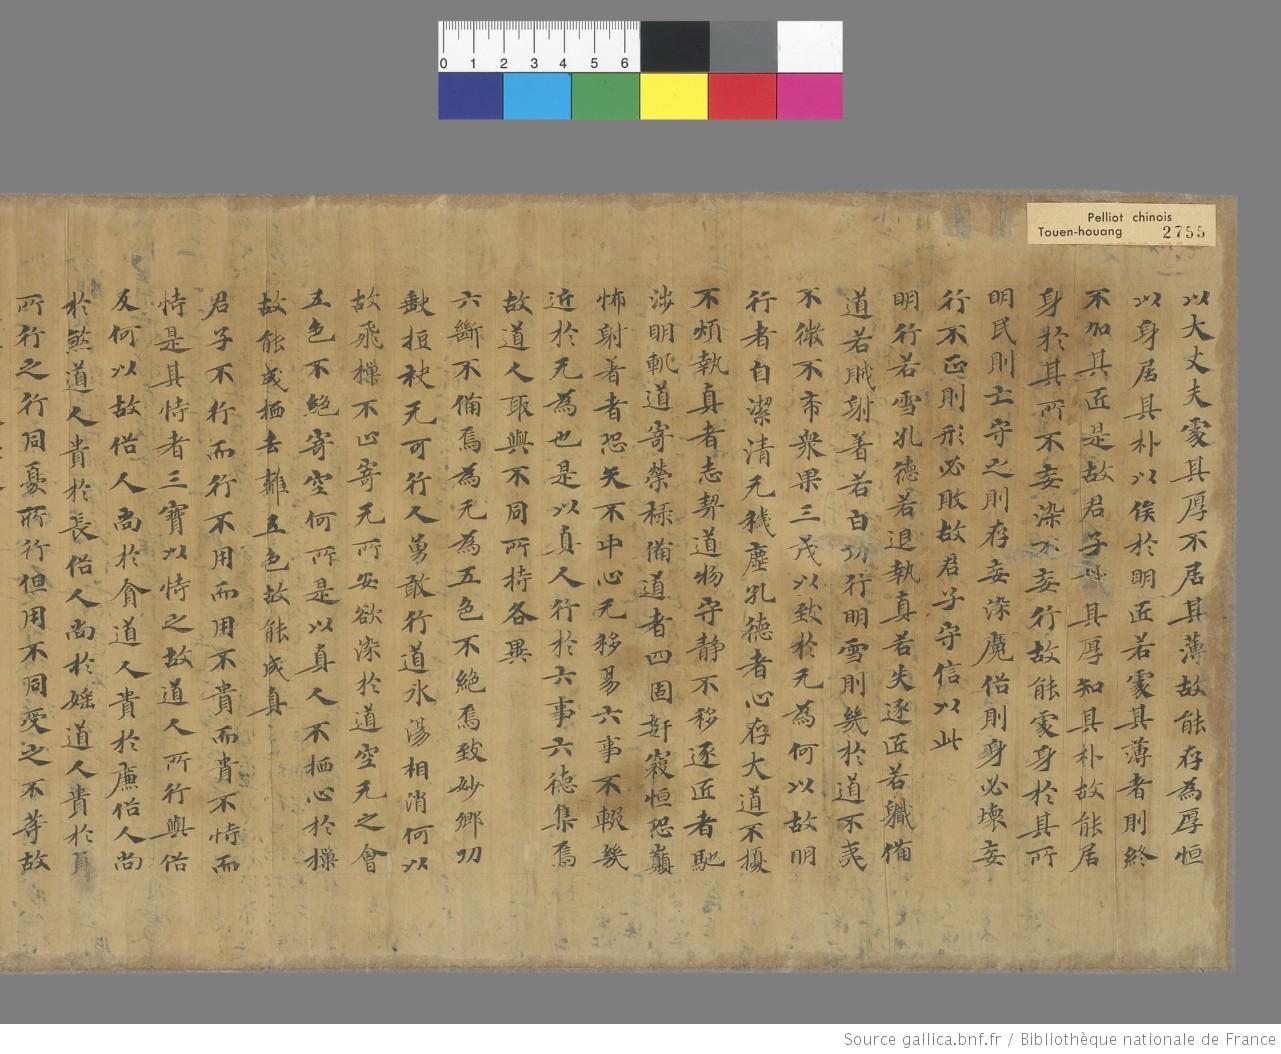 0 1 2 3 4 5 6
Pelliot chinois
Touen-houang 2755
以大丈夫處其厚不居其薄故能存為厚恒
以身居其朴以俟於明匠若處其薄者則終
不加其匠是故君子必其厚知其朴故能居
身於其所不妄染不妄行故能處身於其所
明民則亡守之則存妄染魔俗則身必壞妄
行不正則形必敗故君子守信以此
明行若雪孔德若退執真若失逐匠若職備
道若賊射著若白功行明雪則幾於道不
不徵不帝眾果三茂以致於无為何以故明
行者自潔清无穢塵孔德者心存大道不擾
不煩執真者志契道物守静不移逐匠者馳
涉明軌道寄榮祿備道者四固奸寇恒恐巔
怖射著者恐矢不中心无移易六事不輟幾
近於无為也是以真人行於六事六德集焉
故道人取與不同所持各異
六斷不備焉為无為五色不絕焉致妙鄉功
拒袂无可行人勇敢行道氷湯相消何以
故飛櫟不止寄无所安欲染於道空无之會
五色不絕寄空何所是以真人不栖心於櫟
故能或栖去離五色故能成真
君子不行而行不用而用不貴而貴不恃而
恃是其恃者三寶以恃之故道人所行與俗
反何以故俗人尚於貪道人貴於廉俗人尚
於煞道人貴於長俗人尚於婬道人貴於真
所行之行同憂所行但用不同受之不等故
Source gallica.bnf.fr / Bibliothèque nationale de France